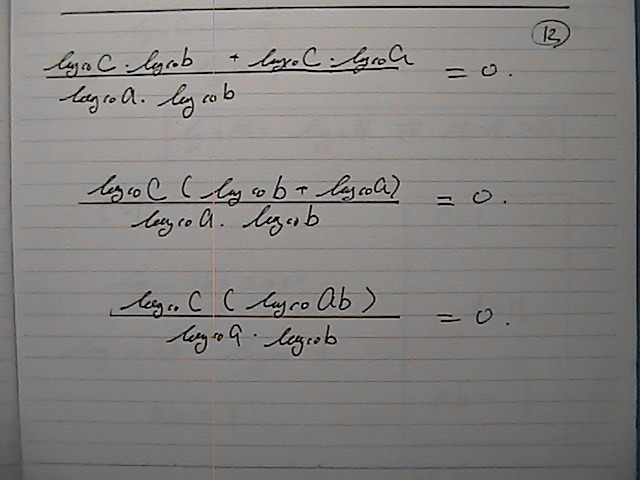 12
log₁₀C · log₁₀b + log₁₀C · log₁₀a
= 0.
log₁₀a · log₁₀b
log₁₀C ( log₁₀b + log₁₀a)
= 0.
log₁₀a · log₁₀b
log₁₀C ( log₁₀ab )
= 0.
log₁₀a · log₁₀b